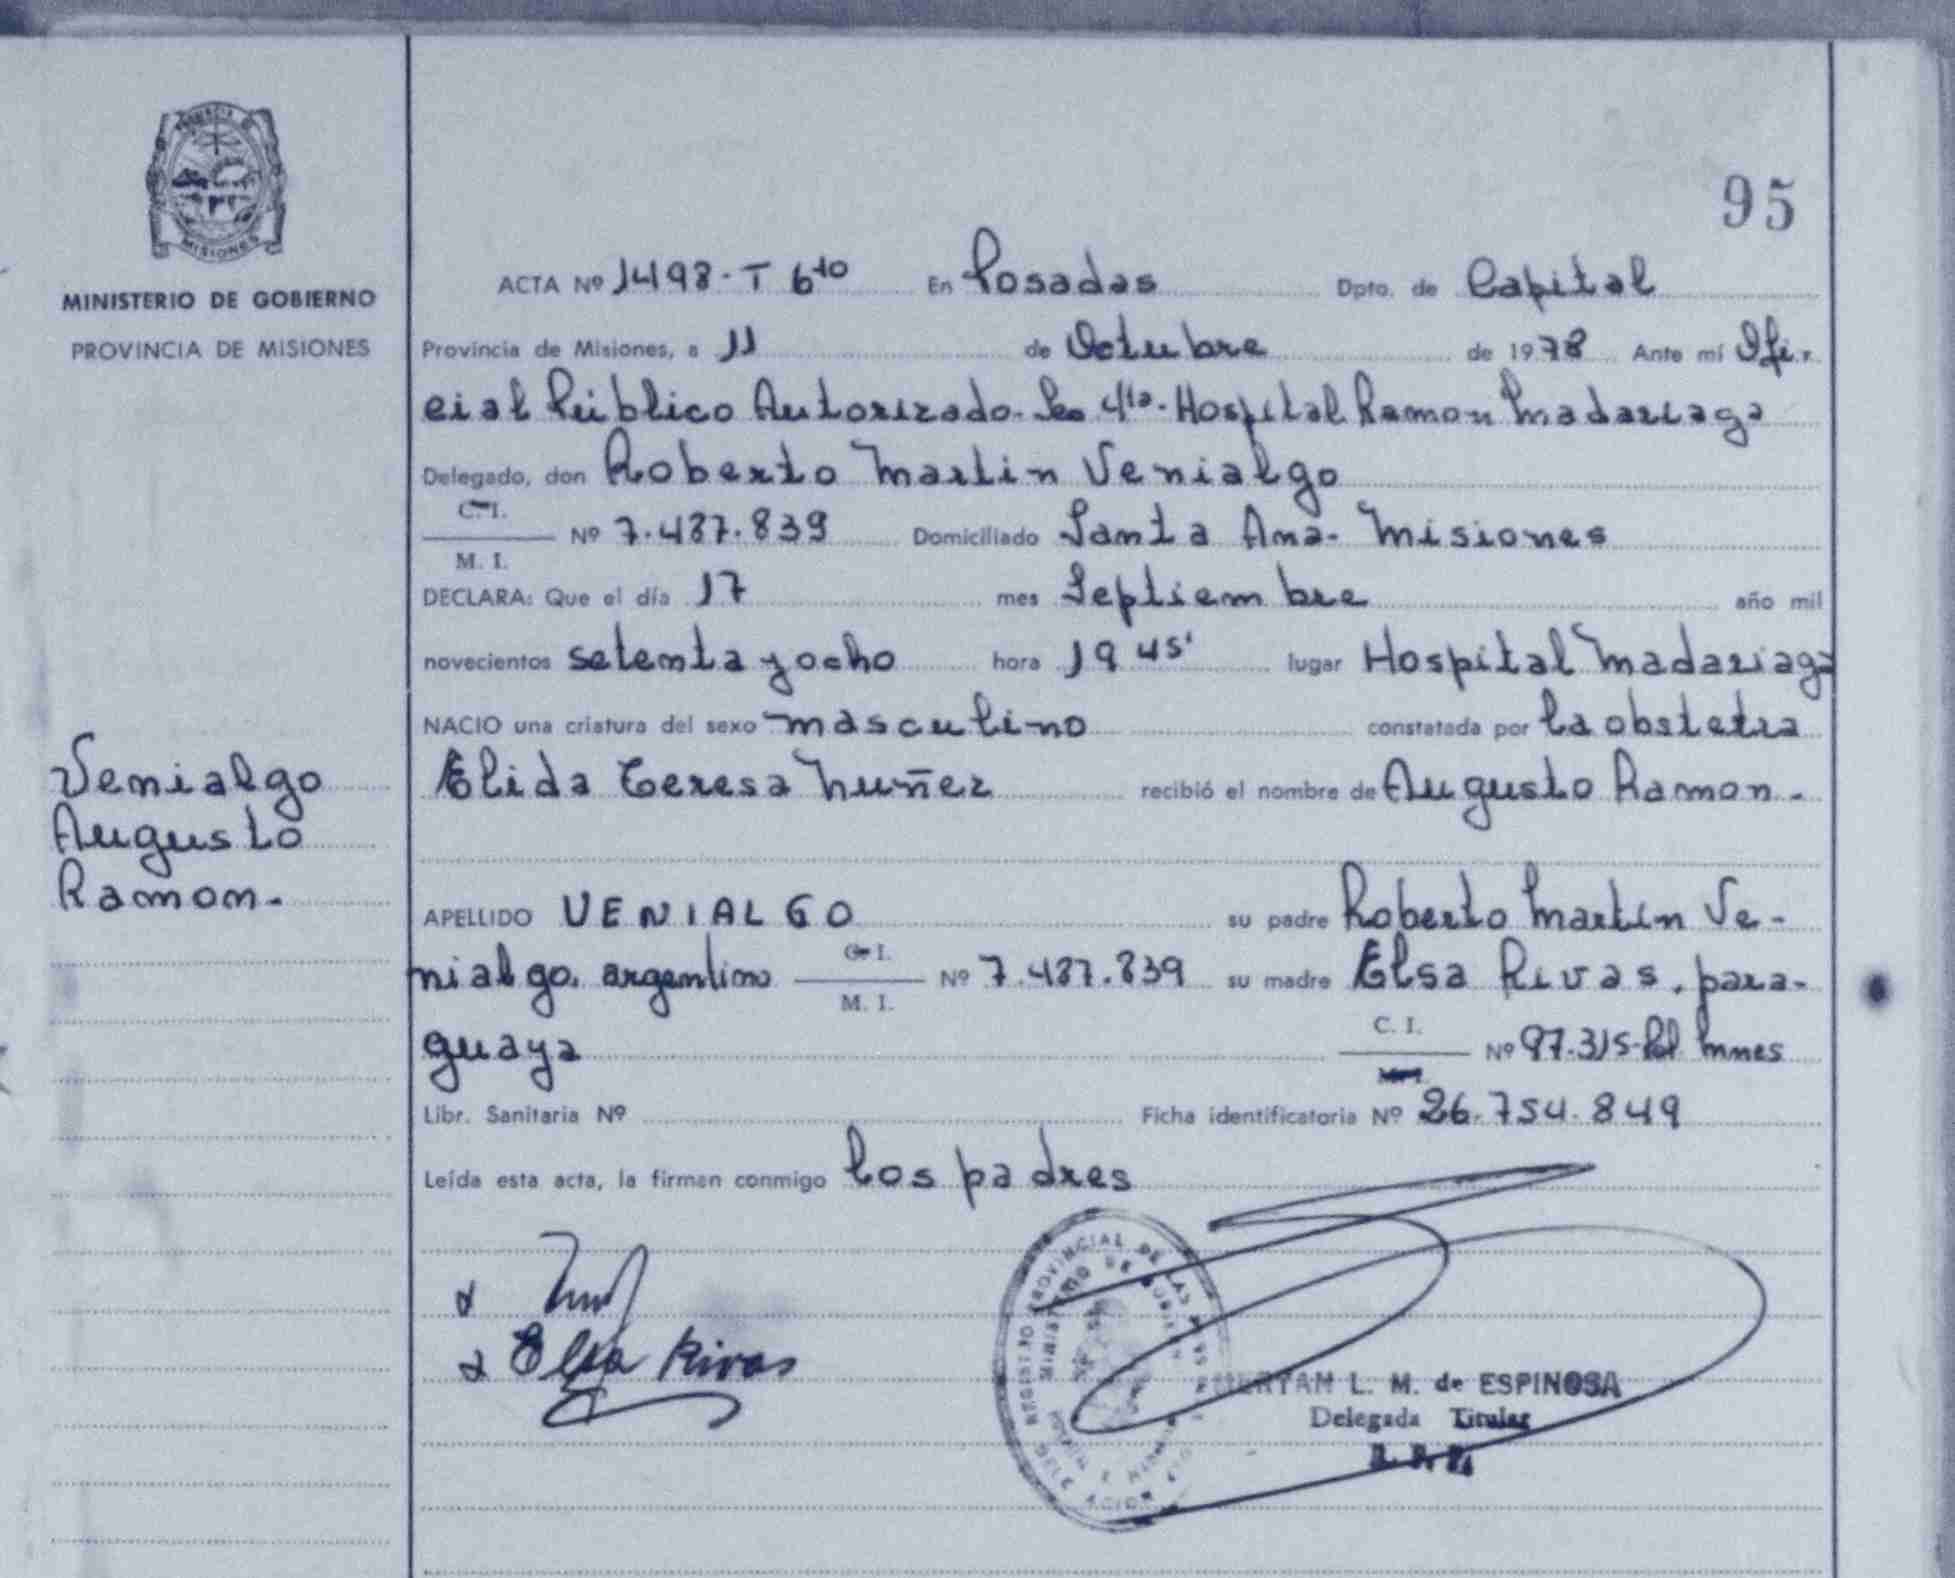 95
MISIONES
MINISTERIO DE GOBIERNO
PROVINCIA DE MISIONES
ACTA Nº 1498-T 6to En Posadas Dpto. de Capital
Provincia de Misiones, a 11 de Octubre de 1978 Ante mí Ofi-
cial Público Autorizado. 4ta. Hospital Ramon Madariaga
Delegado, don Roberto Martin Venialgo
C. I.
M. I. Nº 7.487.839 Domiciliado Santa Ana- Misiones
DECLARA: Que el día 17 mes Septiembre año mil
novecientos setenta y ocho hora 19 45' lugar Hospital Madariaga
NACIO una criatura del sexo masculino constatada por la obstetra
Elida Teresa Nuñez recibió el nombre de Augusto Ramon.-
Venialgo
Augusto
Ramon.
APELLIDO VENIALGO su padre Roberto Martín Ve-
nialgo, argentino C. I. M. I. Nº 7.487.839 su madre Elsa Rivas, para-
guaya C. I. M. I. Nº 97.315-Pol Mnes
Libr. Sanitaria Nº Ficha identificatoria Nº 26.754.849
Leída esta acta, la firman conmigo los padres
Elsa Rivas
REGISTRO PROVINCIAL DE LAS PERSONAS
L. M. de ESPINOSA
Delegada Titular